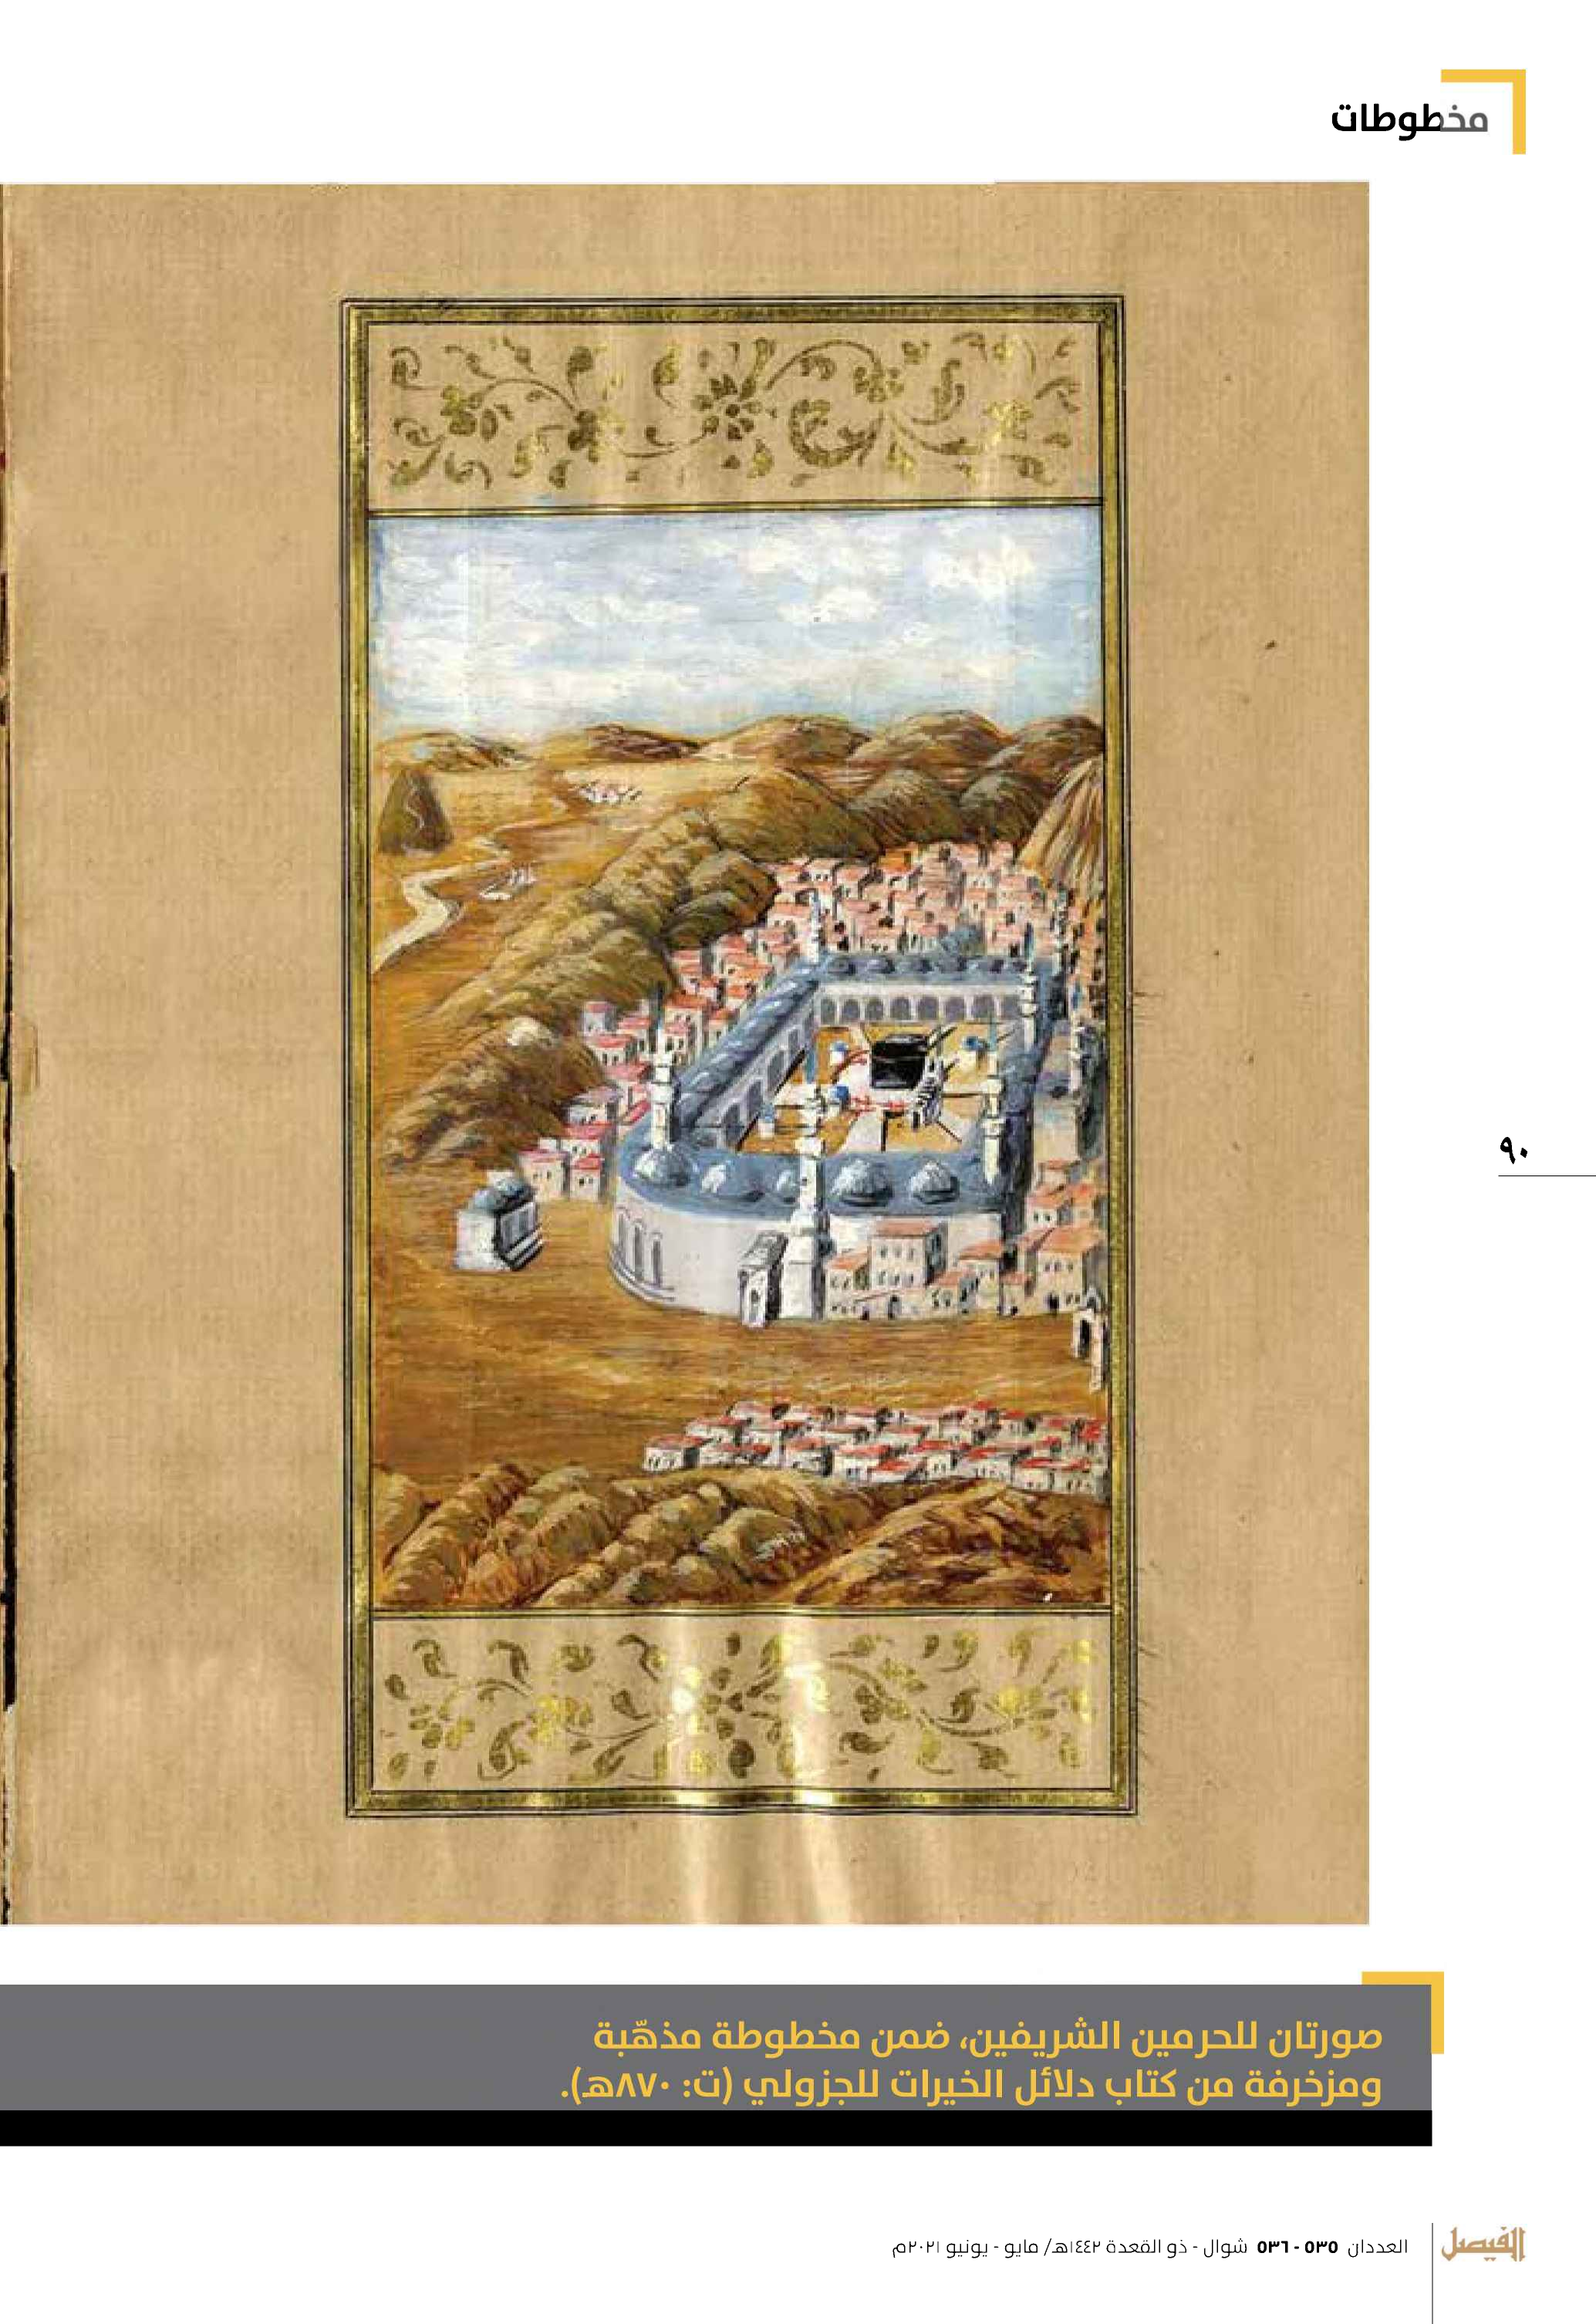 مخطوطات
٩٠
صورتان للحرمين الشريفين، ضمن مخطوطة مذهّبة
ومزخرفة من كتاب دلائل الخيرات للجزولي (ت: ٨٧٠هـ).
الفيصل
العددان ٥٣٥ - ٥٣٦ شوال - ذو القعدة ١٤٤٢هـ/ مايو - يونيو ٢٠٢١م